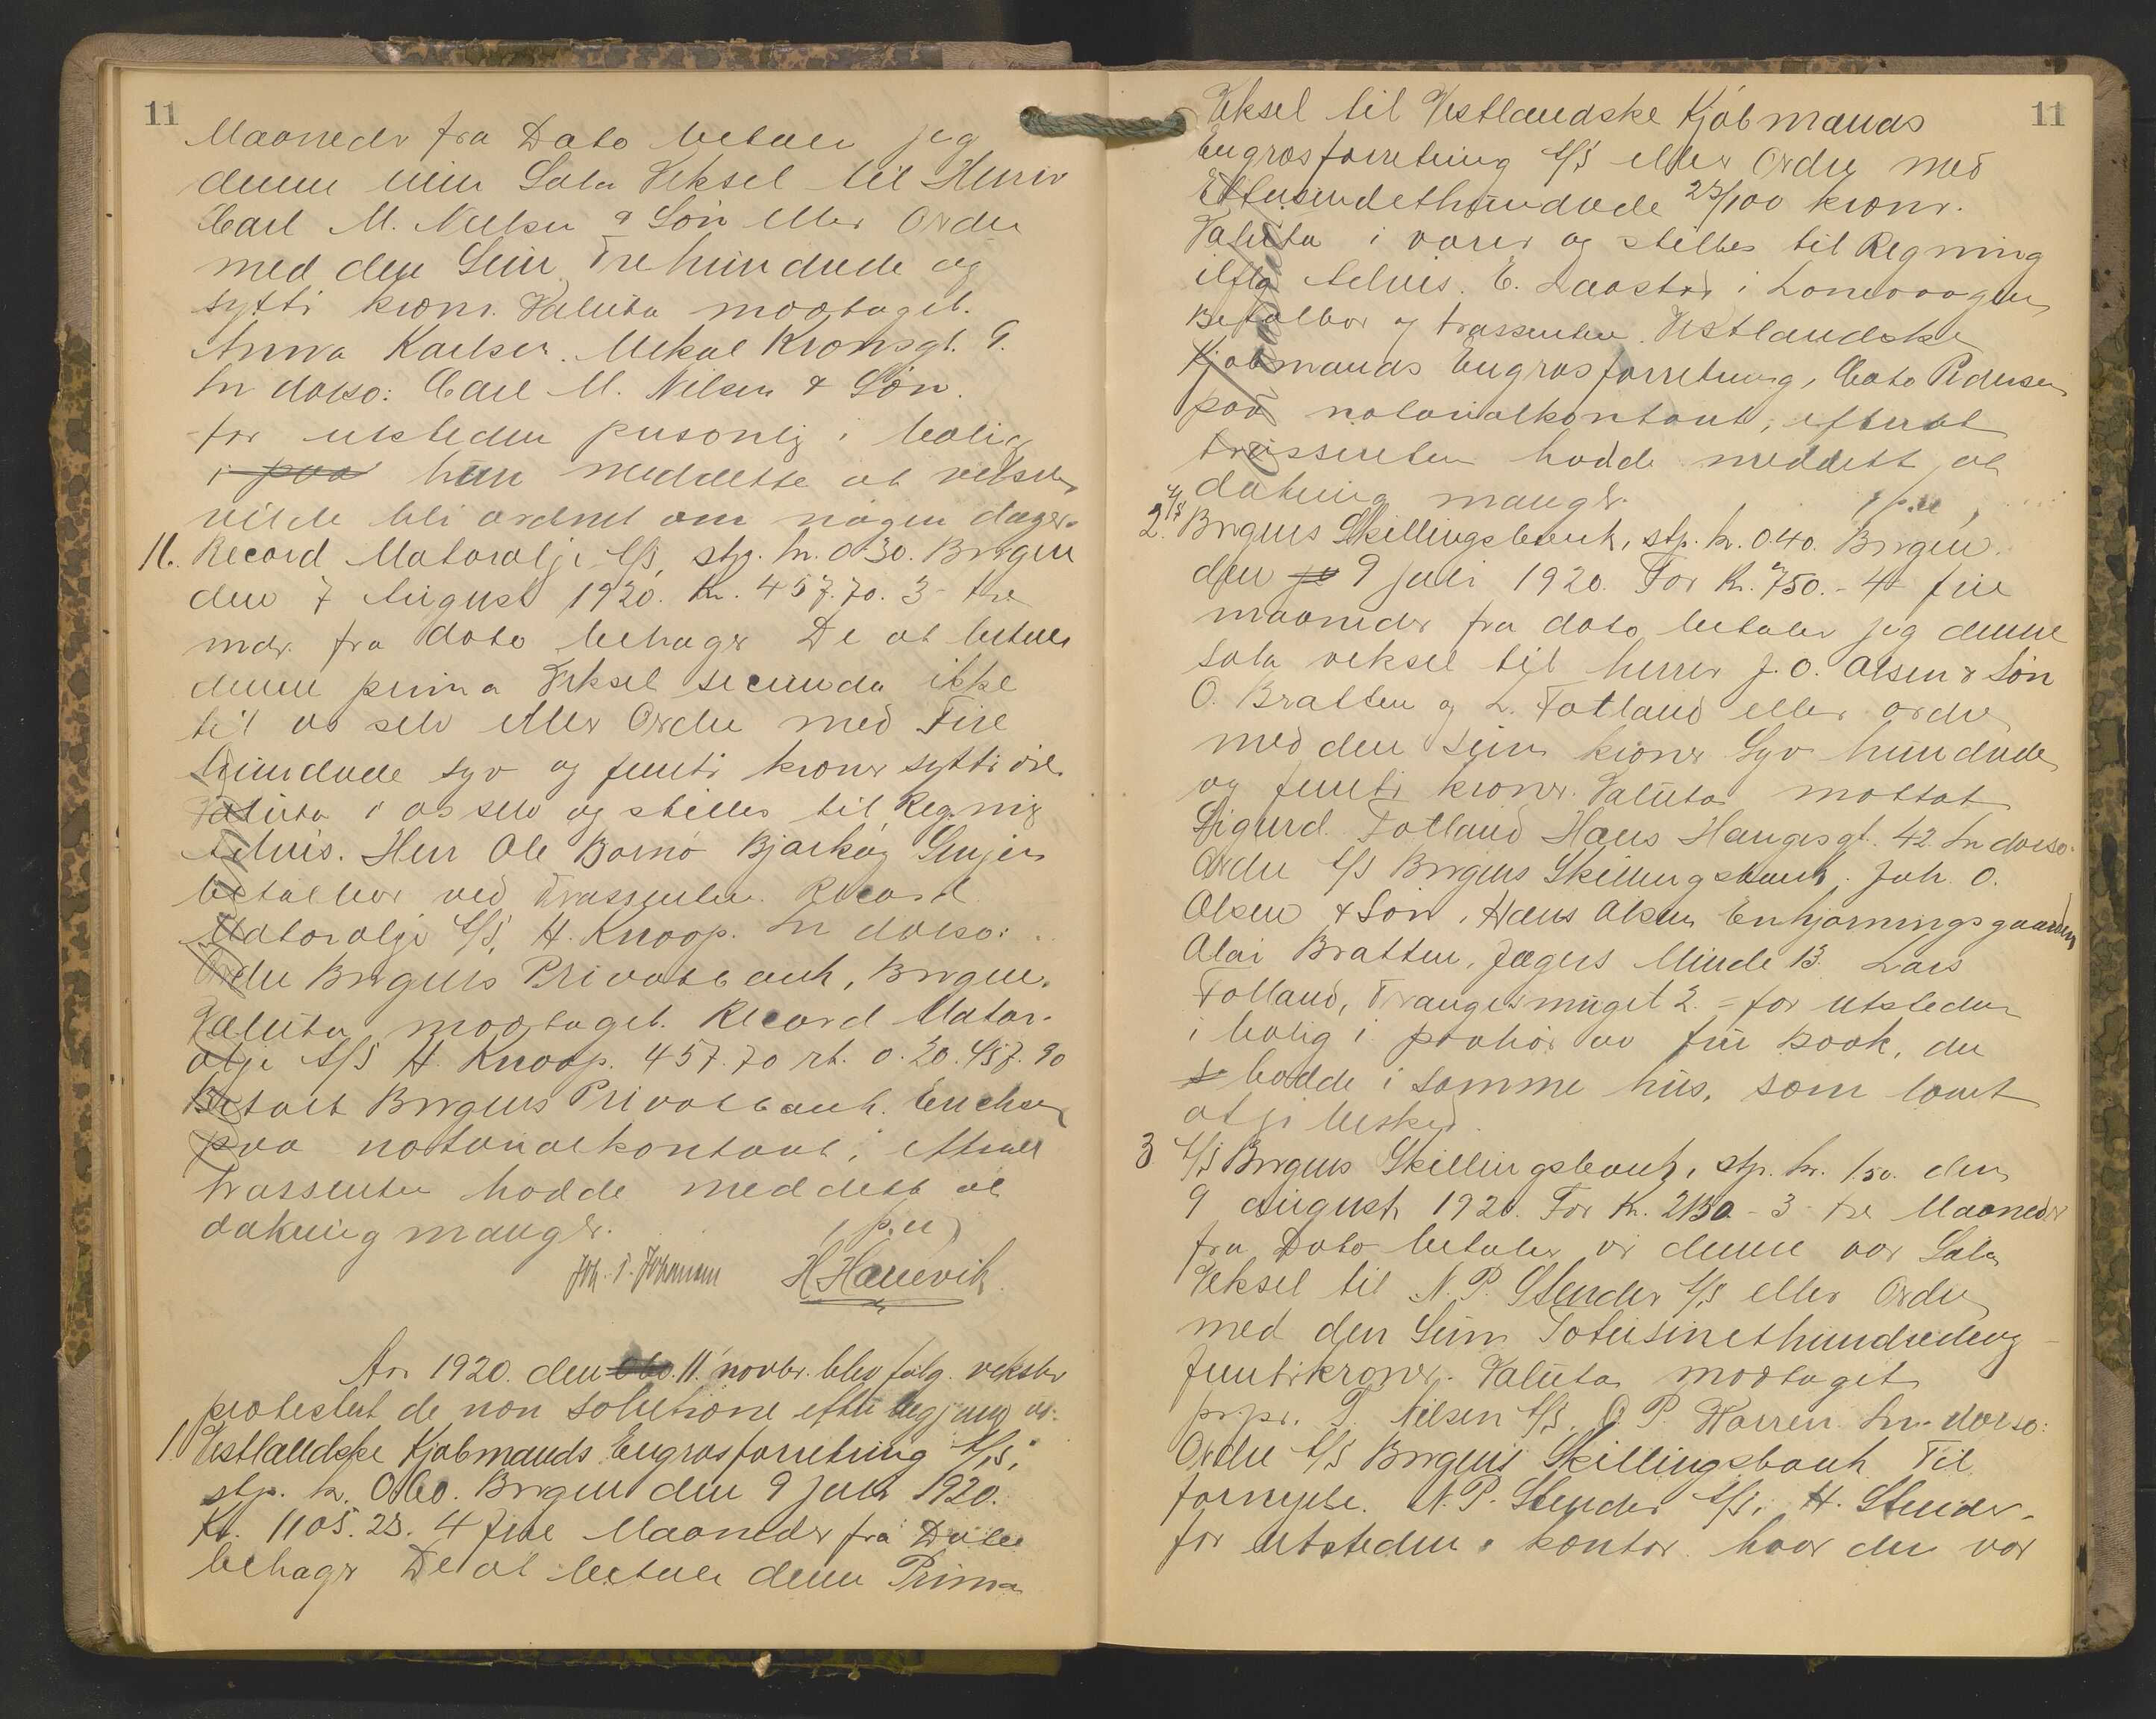 11
Maaneder fra Dato betaler jeg
denne min Sola Veksel til Herrer
Carl M. Nielsen & Søn eller Ordre
med den Sum Trehundrede og
sytti kroner. Valuta modtaget.
Anna Karlsen. Mikal Kronsgt. 9.
In dorso: Carl M. Nilsen & Søn.
for utstederen personlig i bolig
i paa hun meddelte at vekselen
vilde bli ordnet om nogen dager.
11. Record Motorolje A/S, stp. kr. 0.30. Bergen
den 7 August 1920. Kr. 457.70. 3 tre
mdr. fra dato behager De at betale
denne prima Veksel secunda ikke
til os selv eller Ordre med Fire
hundrede syv og femti kroner sytti øre.
Valuta i os selv og stilles til Regning
Advis. Herr Ole Bornø Bjarkøy Senjen
betalbar ved Trassenten. Record
Motorolje A/S, H. Knoop. In dorso:
Ordre Bergens Privatbank, Bergen.
Valuta modtaget. Record Motor-
olje A/S H. Knoop. 457.70 rt. 0.20. 457.90
Betalt Bergens Privatbank. Erichsen
paa notarialkontoret; efterat
trassenten hadde meddelt at
dækning mangler.
p.u.
H. Hauevik
Aar 1920. den 11. novbr. blev følg. veksler
protestert de non solutione efter begjæring av:
1. Vestlandske Kjøbmands Engrosforretning A/S,
stp. kr. 0.60. Bergen den 9 Juli 1920.
Kr. 1105.23. 4 fire Maaneder fra Dato
behager De at betale denne Prima
11
Veksel til Vestlandske Kjøbmands
Engrosforretning A/S eller Ordre med
Ettusindethundrede 23/100 kroner.
Valuta i varer og stilles til Regning
ifølg Advis. E. i
Betalbar og trassenten. Vestlandske
Kjøbmands Engrosforretning, Cato Pedersen
paa notarialkontoret, efterat
trassenten hadde meddelt at
dækning mangler.
p.u.
2. A/S Bergens Skillingsbank, stp. kr. 0.40. Bergen
den 9 juli 1920. For Kr. 750.- 4 fire
maaneder fra dato betaler jeg denne
sola veksel til herrer J. O. Olsen & Søn
O. Bratten og L. Totland eller ordre
med den sum kroner Syv hundrede
og femti kroner. Valuta mottat
Sigurd Totland Hans Haugesgt. 42. In dorso:
Ordre A/S Bergens Skillingsbank. Joh. O.
Olsen & Søn, Hans Olsen Enhjørningsgaarden
Olai Bratten, Jægers Minde 13. Lars
Totland, Trangesmuget 2. = for utstederen
i bolig i paahør av fru Kook, der
bodde i samme hus, som lovet
at gi besked.
3 A/S Bergens Skillingsbank, stp. kr. 1.50. den
9 august 1920. For Kr. 2150.- 3 tre Maaneder
fra Dato betaler vi denne vor Sola
Veksel til N. P. Stender A/S eller Ordre
med den Sum Totusinethundredeog
femtikroner. Valuta modtaget
pr.pr. T. Nilsen A/S, O. P. Harren. In dorso:
Ordre A/S Bergens Skillingsbank Til
fornyelse. N. P. Stender A/S, H. Stender.
for utstederens kontor hvor der var